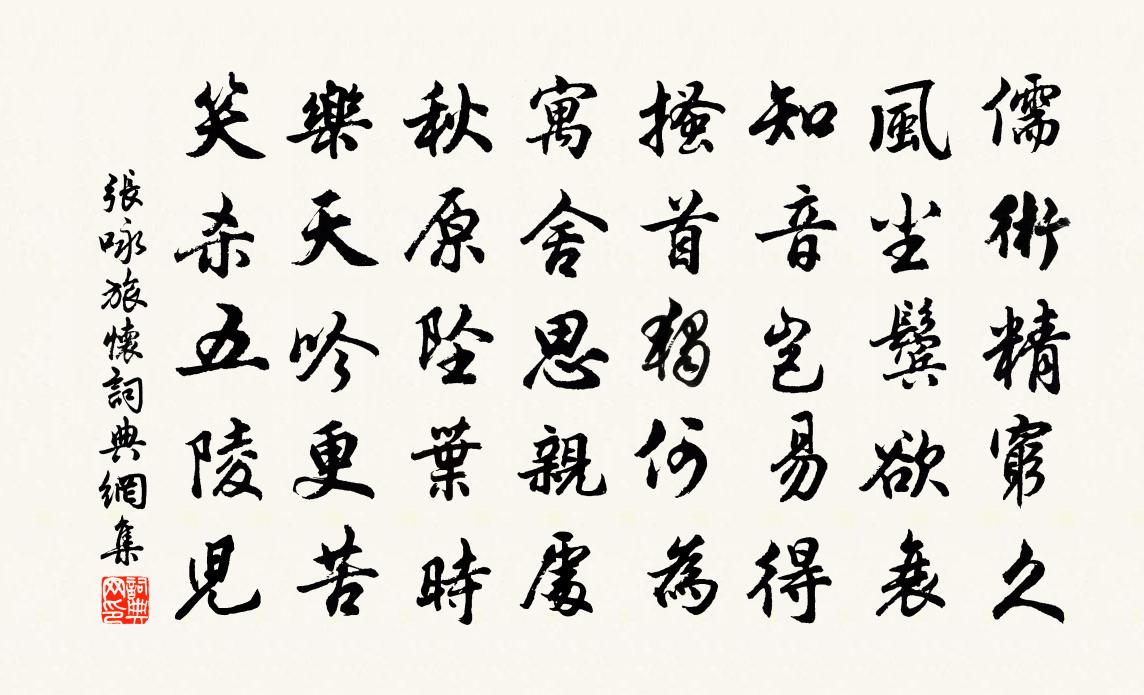 儒術精窮久
風塵鬓欲衰
知音豈易得
搔首獨何為
寓舍思親處
秋原墜葉時
樂天吟更苦
笑杀五陵児
張咏旅懷詞典網集
詞典网印